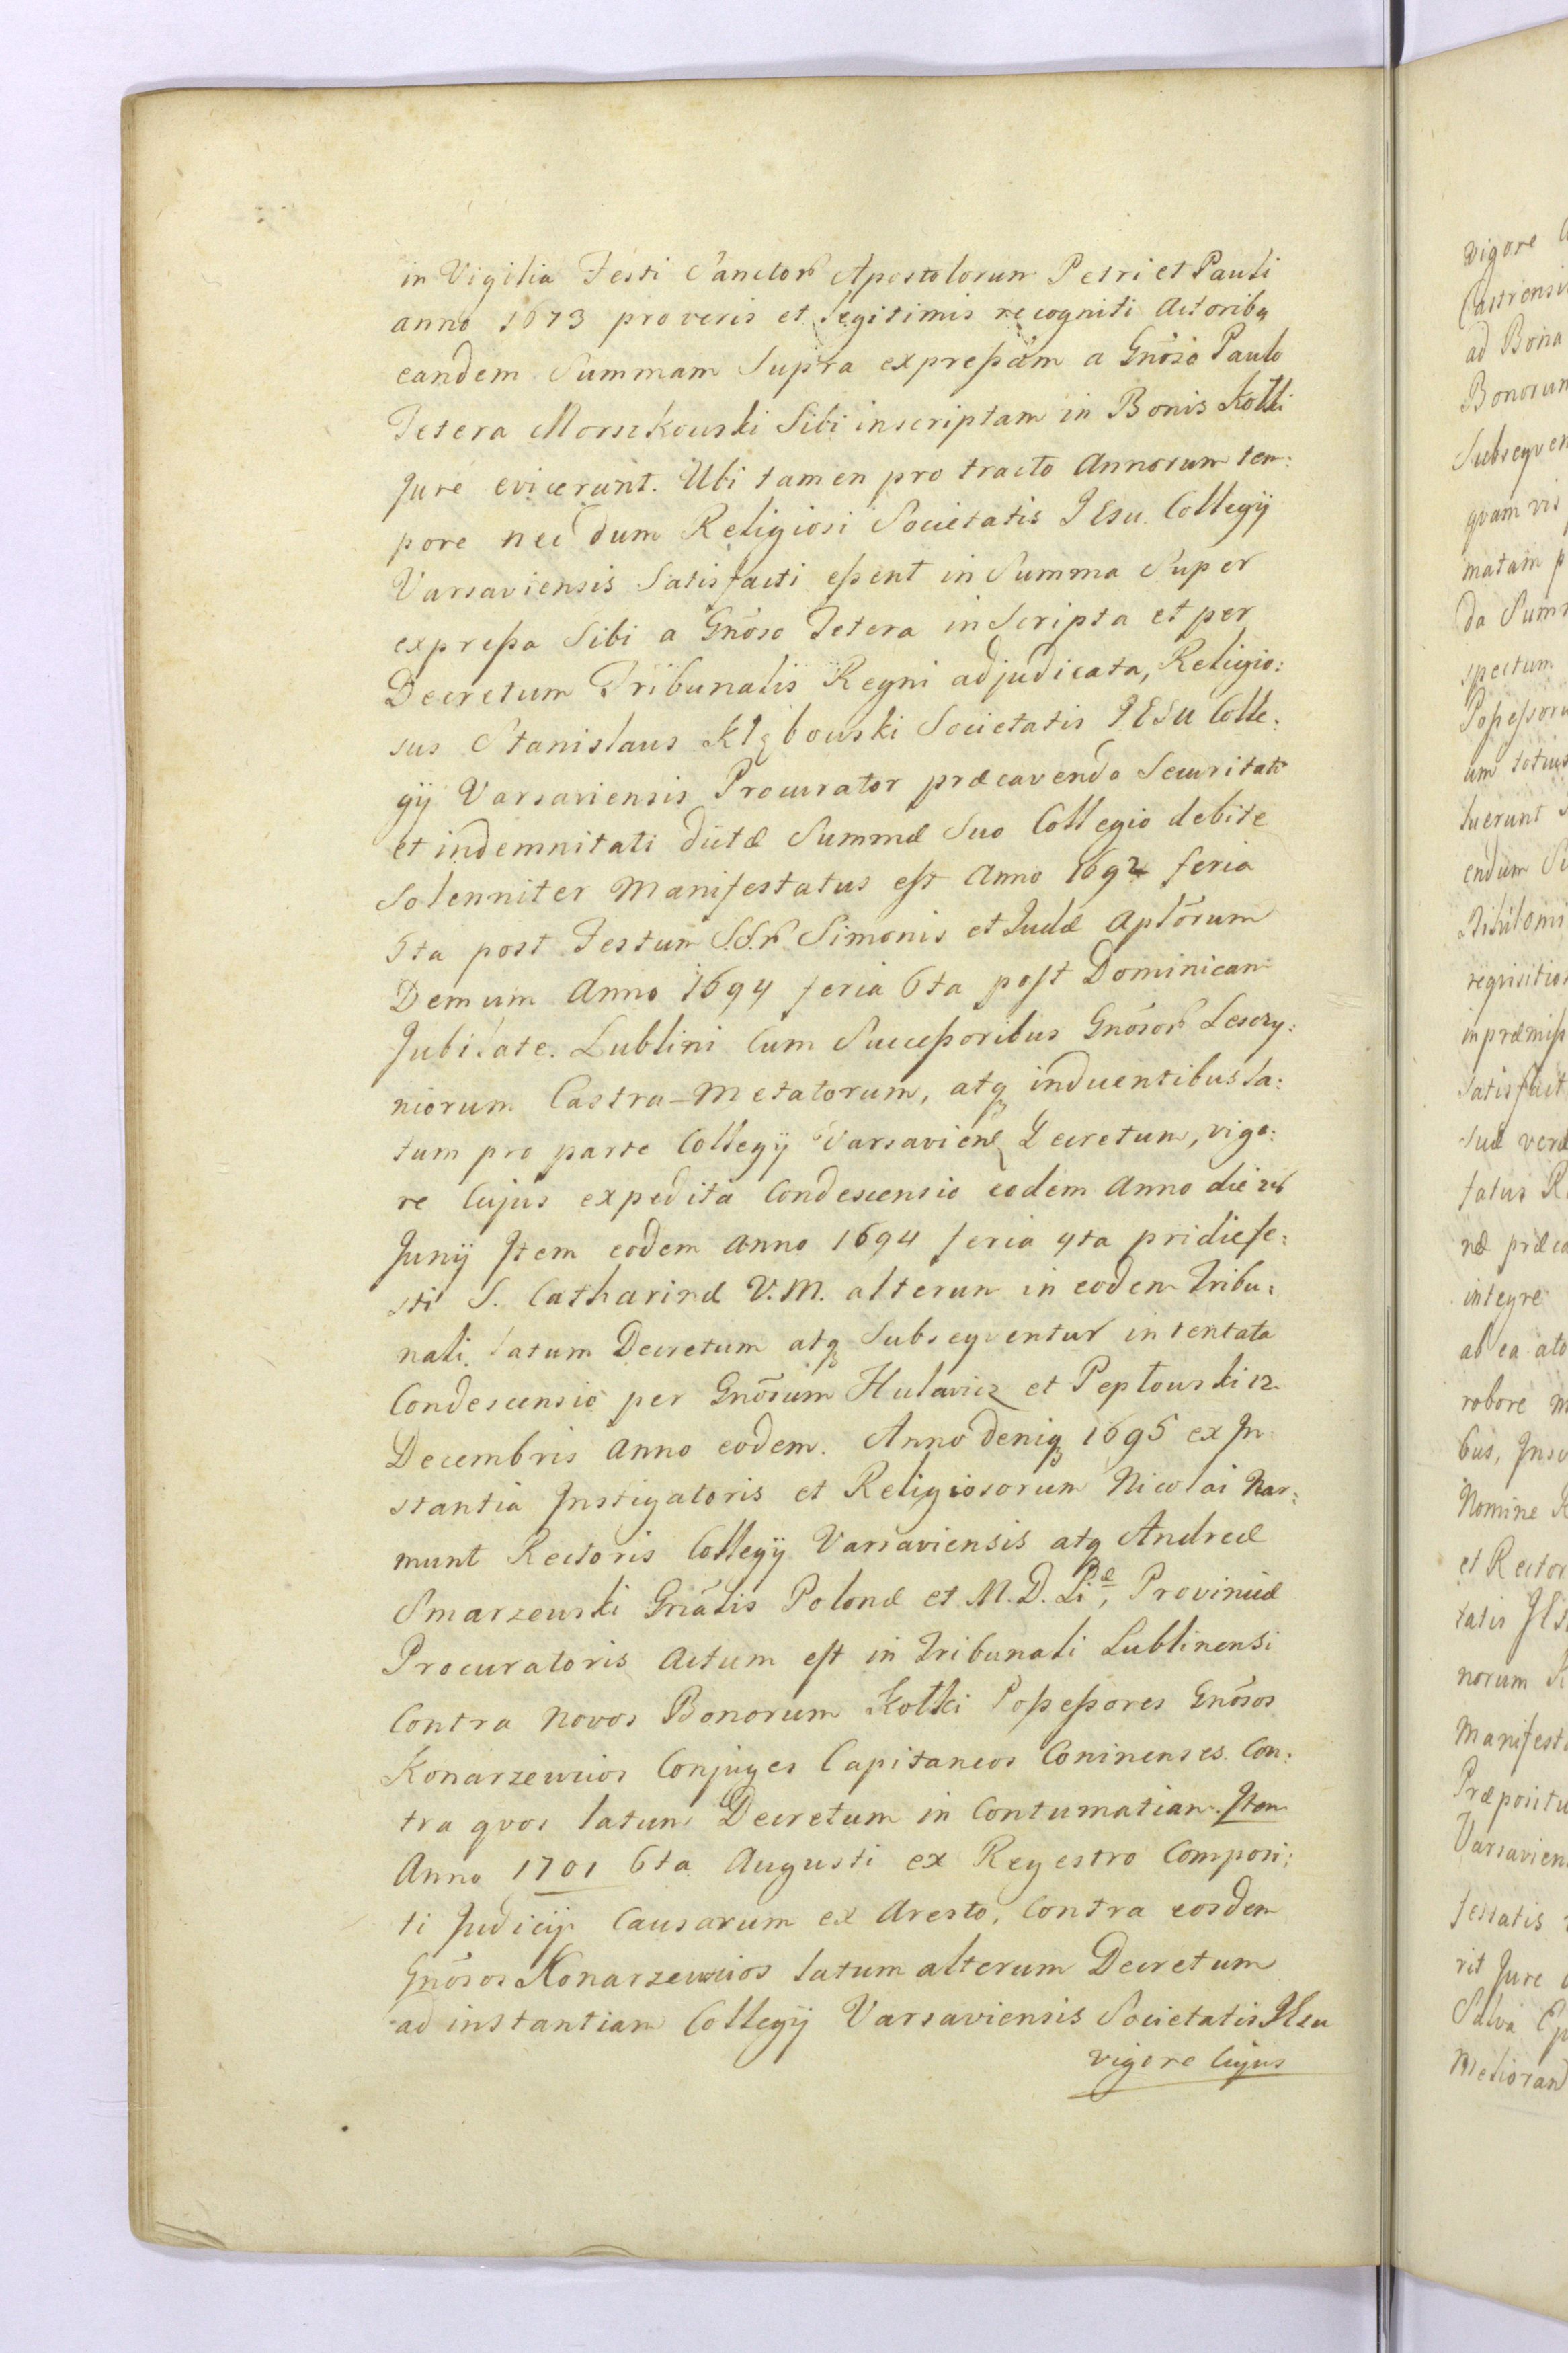 in Vigilia Festi Sanctor Apostolorum Petri et Pauli
anno 1673 pro veris et legitimis recogniti Actoribq
eandem Summam Supra expreßam a Gnoso Paulo
Tetera Morszkowski Sibi inscriptam in Bonis Kołki
Jure evicerunt. Ubi tamen pro tracto Annorum tem:
pore nec dum Religiosi Societatis IEsu Collegÿ
Varsaviensis Satisfacti eßent in Summa Super
expreßa Sibi a Gnoso Tetera inscripta et per
Decretum Tribunalis Regni adjudicata, Religio:
sus Stanislaus Kłębowski Societatis IESU Colle:
gÿ Varsaviensis Procurator præcavendo Securitati
et indemnitati dictæ Summæ Suo Collegio debite
Solenniter Manifestatus est Anno 1692 feria
6ta post Festum S.S.r Simonis et Judæ Aptorum
Demum Anno 1694 feria 6ta post Dominicam
Jubilate. Lublini Cum Succeßoribus Gnosor Leszczy:
niorum Castra-Metatorum, atq inducentibus la:
tum pro parte Collegÿ Varsavien Decretum, vigo:
re Cujus expedita Condescensio eodem Anno die
Junÿ Item eodem Anno 1694 feria 4ta pridie fe:
sti S. Catharinæ V.M. alterum in eodem Tribu:
nali latum Decretum atq Subseqventur intentata
Condescensio per Gnosum Hulavicz et Peptowski 12
Decembris Anno eodem. Anno deniq 1695 ex In
stantia Instigatoris et Religiosorum Nicolai Nar:
munt Rectoris Collegÿ Varsaviensis atq Andreæ
Smarzewski Gnalis Polonæ et M.D. Liæ, Provinciæ
Procuratoris Actum est in Tribunali Lublinensi
Contra Novos Bonorum Kołki Poßeßores Gnosos
Konarzewcios Conjuges Capitaneos Coninenses. Con:
tra qvos latum Decretum in Contumatiam. Item
Anno 1701 6ta Augusti ex Regestro Composi:
ti Judicÿ Causarum ex Aresto, Contra eosdem
Gnosos Konarzewcios latum alterum Decretum
ad instantiam Collegÿ Varsaviensis Societatis IEsu
vigore Cujus
vigore
Castrensi
ad Bona
Bonorum
Subseqven
qvam vis
matam p
da Summ
spectum
Poßeßoru
um totius
luerunt
endum
Nihilomi
reqvisitio
in præmiß
Satisfact
suæ veræ
fatus R
næ præca
integre
ab ea
robore
bus, Insc
Nomine
et Rector
tatis IEs
norum K
Manifesta
Præpositu
Varsavien
festatis
rit Jure
Salva
Meliorand